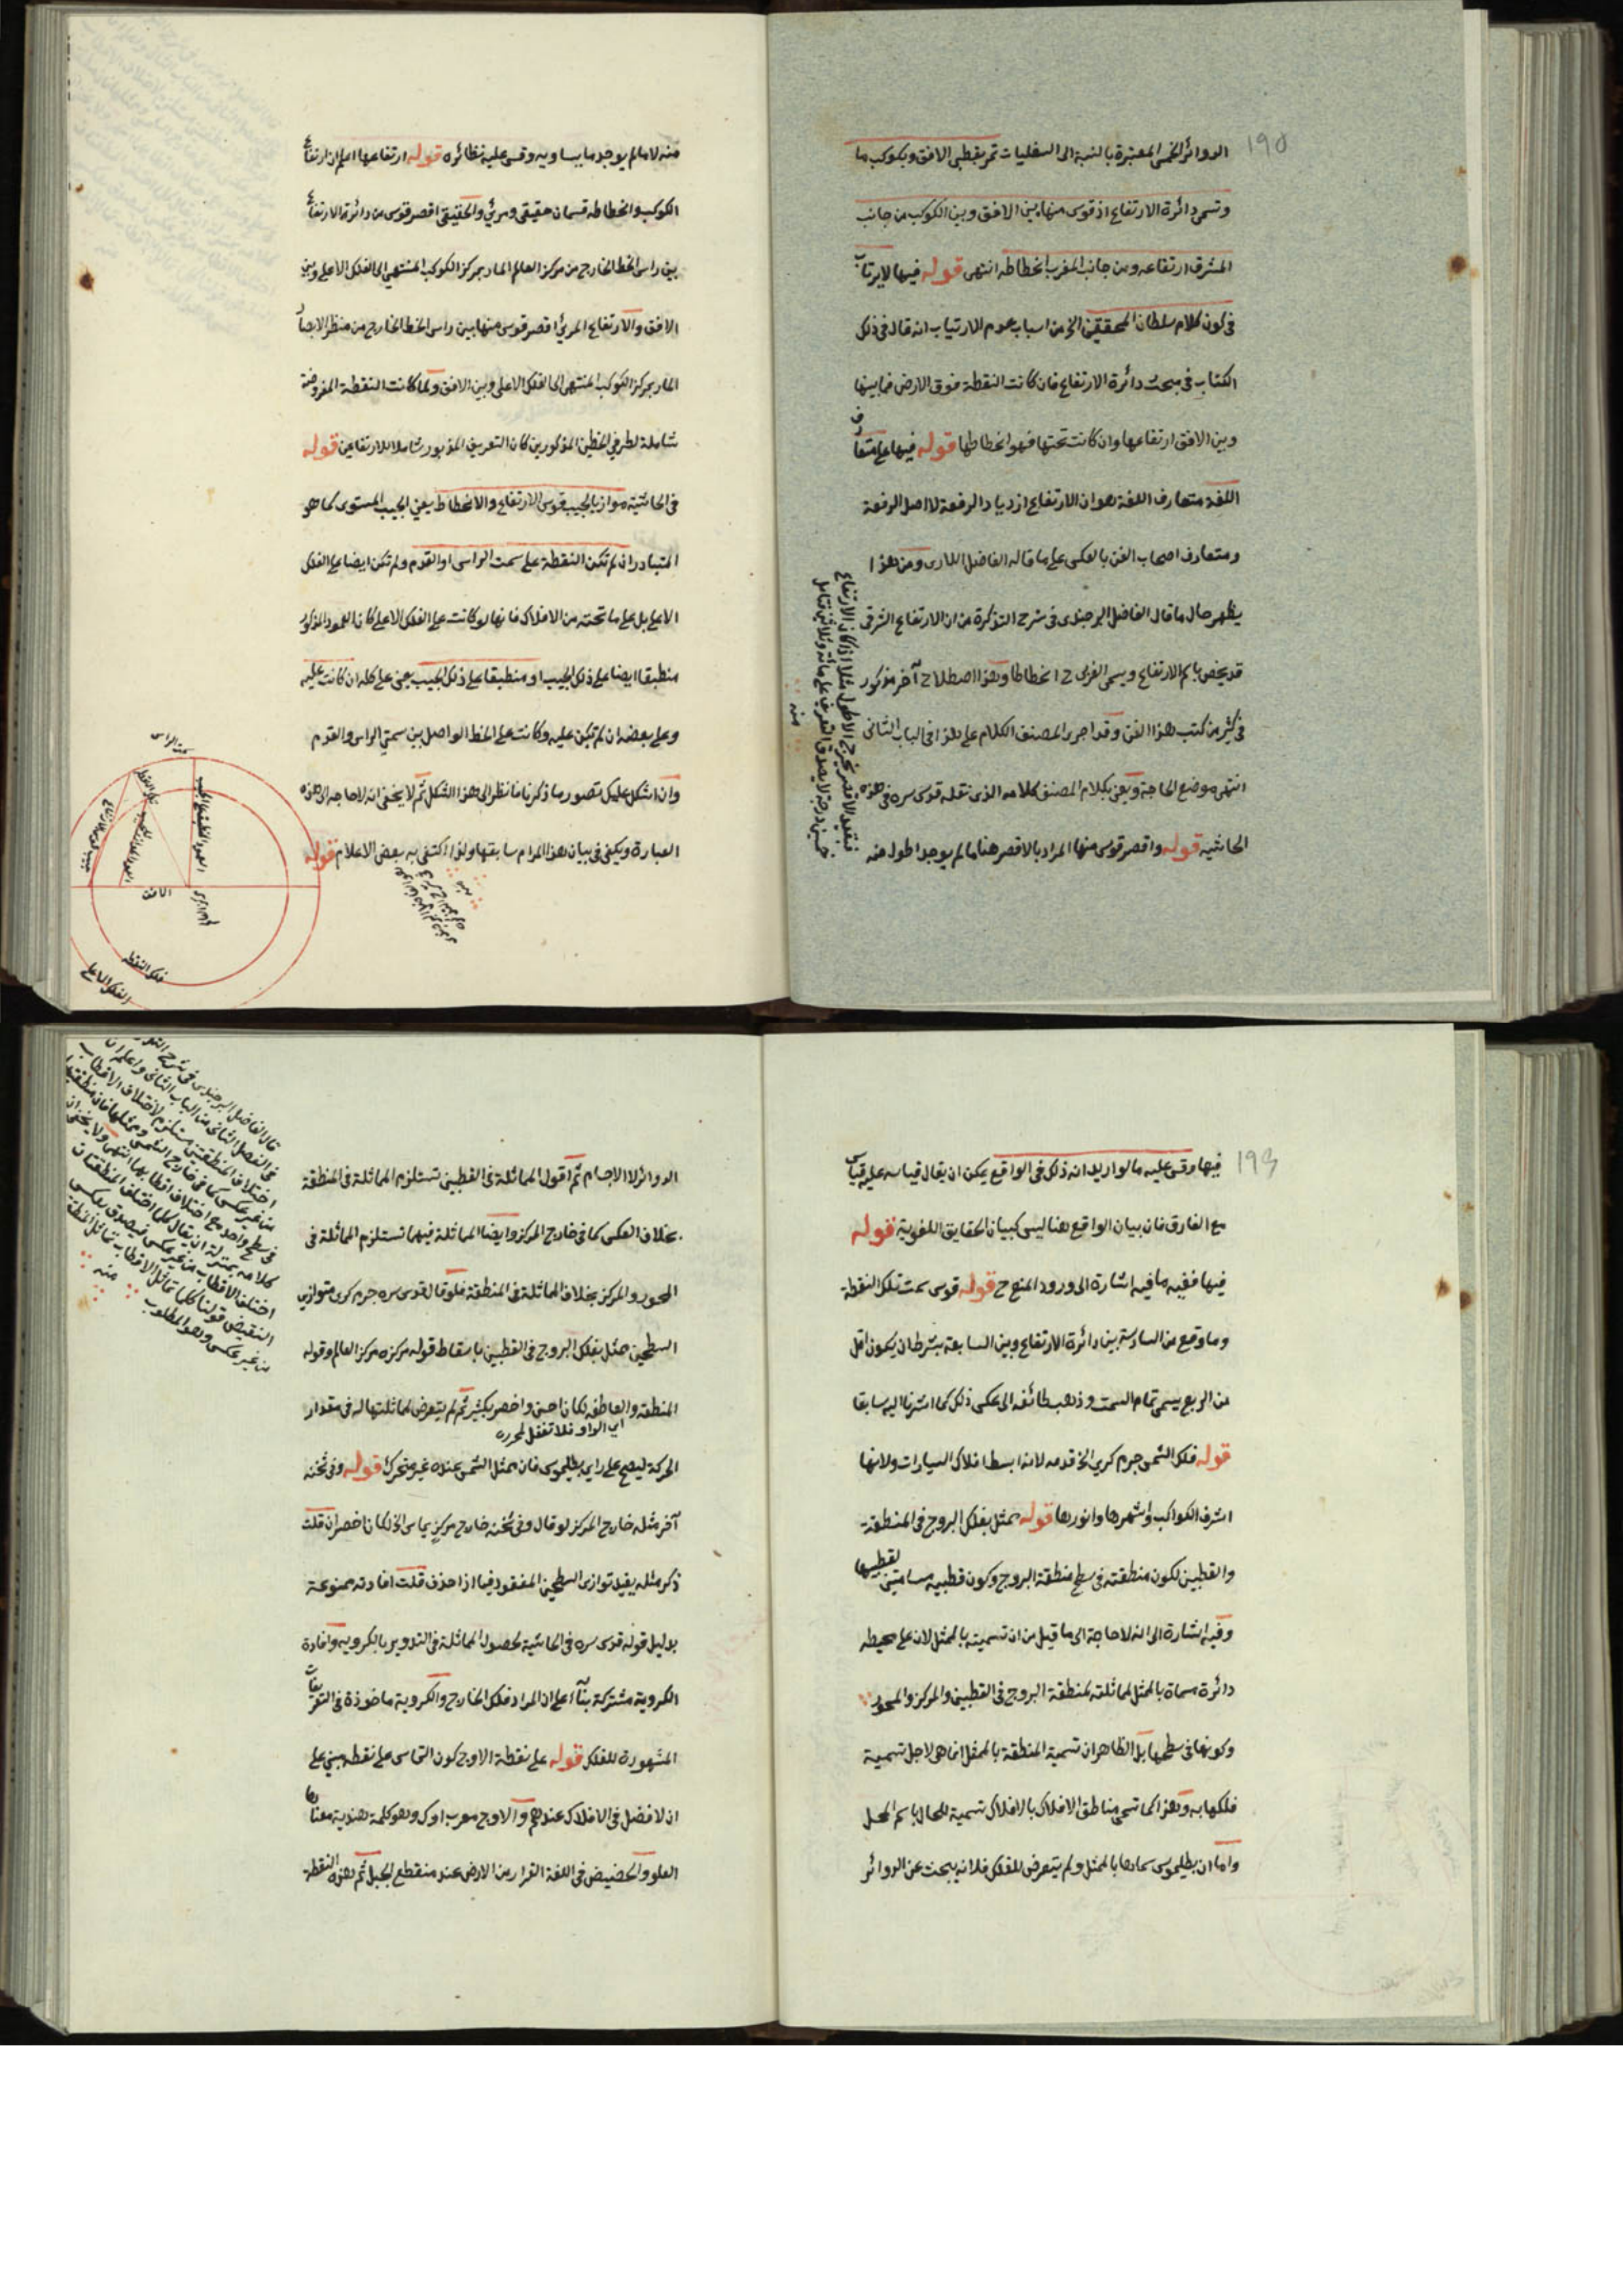 ١٩٥
الدوائر الخمس المعتبرة بالنسبة الى السفليات تمر بقطبى الافق وبكوكب ما
وتسمى دائرة الارتفاع اذ قوس منها بين الافق وبين الكوكب من جانب
المشرق ارتفاعه ومن جانب المغرب انحطاطه انتهى قوله فيها لا يرتاب
فى كون كلام سلطان المحققين الخ من اسباب عدم الارتياب انه قال فى ذلك
الكتاب فى مبحث دائرة الارتفاع فان كانت النقطة فوق الارض فما بينها
وبين الافق ارتفاعها وان كانت تحتها فهو انحطاطها قوله فيها على متعارف
اللغة متعارف اللغة هو ان الارتفاع ازدياد الرفعة لا اصل الرفعة
ومتعارف اصحاب الفن بالعكس على ما قاله الفاضل اللارى ومن هذا
يظهر حال ما قال الفاضل البرجندى فى شرح التذكرة من ان الارتفاع الشرقى
قد يخص باسم الارتفاع ويسمى الغربى ح انحطاطا وهذا اصطلاح آخر مذكور
فى كثير من كتب هذا الفن وقد اجرى المصنف الكلام على هذا فى الباب الثانى
انتهى موضع الحاجة ويعنى بكلام المصنف كلامه الذى نقله قدس سره فى هذه
الحاشيه قوله واقصر قوس منها المراد بالاقصر هنا ما لم يوجد اطول منه
منه
منه لا ما لم يوجد ما يساويه وقس عليه نظائره قوله ارتفاعها اعلم ان ارتفاع
الكوكب وانحطاطه قسمان حقيقى ومرئى والحقيقى اقصر قوس من دائرة الارتفاع
بين راس الخط الخارج من مركز العالم المار بمركز الكوكب المنتهى الى الفلك الاعلى وبين
الافق والارتفاع المرئى اقصر قوس منها بين راس الخط الخارج من منظر الابصار
المار بمركز الكوكب المنتهى الى الفلك الاعلى وبين الافق ولما كانت النقطة المفروضة
شاملة لطرفى الخطين المذكورين كان التعريف المزبور شاملا للارتفاعين قوله
فى الحاشية موازيا لجيب قوس الارتفاع والانحطاط يعنى الجيب المستوى كما هو
المتبادر ان لم تكن النقطة على سمت الراس او القدم ولم تكن ايضا على الفلك
الاعلى بل على ما تحته من الافلاك فانها لو كانت على الفلك الاعلى كان العمود المذكور
منطبقا ايضا على ذلك الجيب او منطبقا على ذلك الجيب يعنى على كله ان كانت عليه
وعلى بعضه ان لم تكن عليه وكانت على الخط الواصل بين سمتى الراس والقدم
وان اشكل عليك تصور ما ذكرنا فانظر الى هذا الشكل ثم لا يخفى انه لا حاجة الى هذه
العبارة ويكفى فى بيان هذا المرام سابقها ولذا اكتفى به بعض الاعلام قوله
سمت الراس
الافق
فلك النقطة
الفلك الاعلى
١٩٦
فيها وقس عليه ما لو اريد انه ذلك فى الواقع يمكن ان يقال قياسه عليه قياس
مع الفارق فان بيان الواقع هنا ليس كبيان الحقايق اللغوية قوله
فيها ففيه ما فيه اشارة الى ورود المنع ح قوله قوس سمت تلك النقطة
وما وقع من السادسة بين دائرة الارتفاع وبين السابعة بشرط ان يكون اقل
من الربع يسمى تمام السمت وذهب طائفة الى عكس ذلك كما اشرنا اليه سابقا
قوله فلك الشمس جرم كرى الخ قدمه لانه ابسط افلاك السيارات ولانها
اشرف الكواكب واشهرها وانورها قوله ممثل بفلك البروج فى المنطقة
والقطبين لكون منطقته فى سطح منطقة البروج وكون قطبيه مسامتين لقطبيها
وفيه اشارة الى انه لا حاجة الى ما قيل من ان تسميته بالممثل لان على محيطه
دائرة مسماة بالممثل لمماثلته لمنطقة البروج فى القطبين والمركز والمحور
وكونها فى سطحها بل الظاهر ان تسمية المنطقة بالممثل انما هى لاجل تسمية
فلكها به وهذا كما تسمى مناطق الافلاك بالافلاك تسمية للحال باسم المحل
واما ان بطليموس سماها بالممثل ولم يتعرض للفلك فلانه يبحث عن الدوائر
الدوائر لا الاجسام ثم اقول المماثلة فى القطبين تستلزم المماثلة فى المنطقة
بخلاف العكس كما فى خارج المركز وايضا المماثلة فيهما تستلزم المماثلة فى
المحور والمركز بخلاف المماثلة فى المنطقة فلو قال قدس سره جرم كرى متوازى
السطحين ممثل بفلك البروج فى القطبين باسقاط قوله مركزه مركز العالم وقوله
المنطقة والعاطفه لكان احسن واخصر بكثير ثم لم يتعرض لمماثلتها له فى مقدار
اى الواو فلا تغفل لمحرره
الحركة ليصح على راى بطليموس فان ممثل الشمس عنده غير متحرك قوله وفى ثخنه
آخر مثله خارج المركز لو قال وفى ثخنه خارج مركز يماس الخ لكان اخصر ان قلت
ذكر مثله يفيد توازى السطحين المفقود فيما اذا حذف قلت افادته ممنوعة
بدليل قوله قدس سره فى الحاشية لحصول المماثلة فى التدوير بالكروية وافادة
الكروية مشتركة بناء على ان المراد فلك الخارج والكروية ماخوذة فى التعريفات
المشهورة للفلك قوله على نقطة الاوج كون التماس على نقطة مبنى على
ان لا فضل فى الافلاك عندهم والاوج معرب اوك وهو كلمة هندية معناها
العلو والحضيض فى اللغة القرار من الارض عند منقطع الجبل ثم هذه النقطة
قال الفاضل البرجندى فى شرح
فى الفصل الثانى من الباب الثانى واعلم ان
اختلاف المنطقتين مستلزم لاختلاف الاقطاب
من غير عكس كما فى خارج الشمس وممثلها فان منطقتيهما
فى سطح واحد مع اختلاف اقطابهما انتهى ولا يخفى ان
كلامه بمنزلة ان يقال كلما اختلف المنطقتان
اختلف الاقطاب من غير عكس فيصدق بعكس
النقيض قولنا كلما تماثل الاقطاب تماثل المنطقة
من غير عكس وهو المطلوب منه